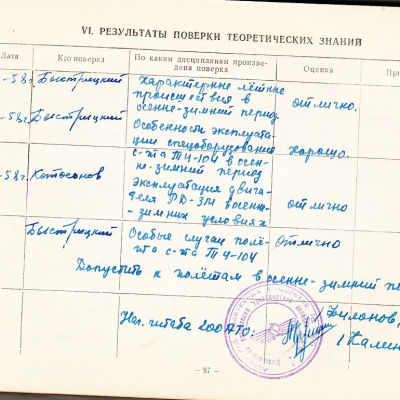 VI. РЕЗУЛЬТАТЫ ПОВЕРКИ ТЕОРЕТИЧЕСКИХ ЗНАНИЙ
Дата Кто поверял По каким дисциплинам произве- Оценка При
дена поверка
-58г. Быстрицкий Характерные лётные
происшествия в
осенне-зимний период отлично.
-58г. Быстрицкий Особенности эксплуата-
ции спецоборудования хорошо.
с-та ТУ-104 в осен-
не-зимний период
-58г. Котосонов Эксплуатация двига-
теля РД-3М в осенне- отлично
-зимних условиях
Быстрицкий Особые случаи полё- Отлично
та с-та ТУ-104
Допустить к полётам в осенне-зимний пе
Нач. штаба 200 АТО: Филонов,
/Калин
— 87 —